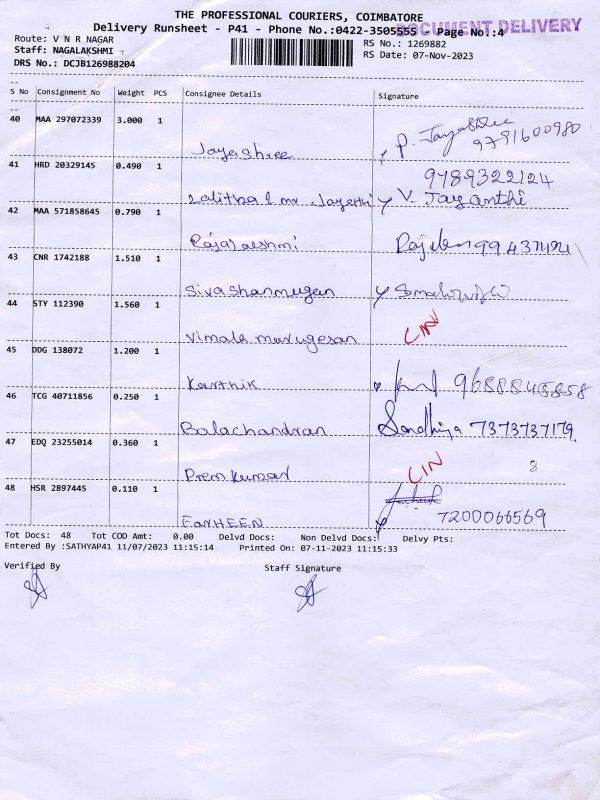 THE PROFESSIONAL COURIERS, COIMBATORE
Delivery Runsheet - P41 - Phone No.:0422-3505555 Page No:4
DOCUMENT DELIVERY
Route: V N R NAGAR RS No.: 1269882
Staff: NAGALAKSHMI RS Date: 07-Nov-2023
DRS No.: DCJB126988204
S No Consignment No Weight PCS Consignee Details Signature
40 MAA 297072339 3.000 1
Jayashree P. Jayashree
9791600980
41 HRD 20329145 0.490 1
9789322124
Lalitha & mr. Jayenthi V. Jayanthi
42 MAA 571858645 0.790 1
Rajalakshmi
43 CNR 1742188 1.510 1
Sivashanmugan
44 STY 112390 1.560 1
Vimala murugesan CIN
45 DDG 138072 1.200 1
Karthik 9688845858
46 TCG 40711856 0.250 1
Balachandran Sandhiya 7373737179
47 EDQ 23255014 0.360 1
Prem Kumar CIN 8
48 HSR 2897445 0.110 1
FARHEEN 7200066569
Tot Docs: 48 Tot COD Amt: 0.00 Delvd Docs: Non Delvd Docs: Delvy Pts:
Entered By :SATHYAP41 11/07/2023 11:15:14 Printed On: 07-11-2023 11:15:33
Verified By Staff Signature